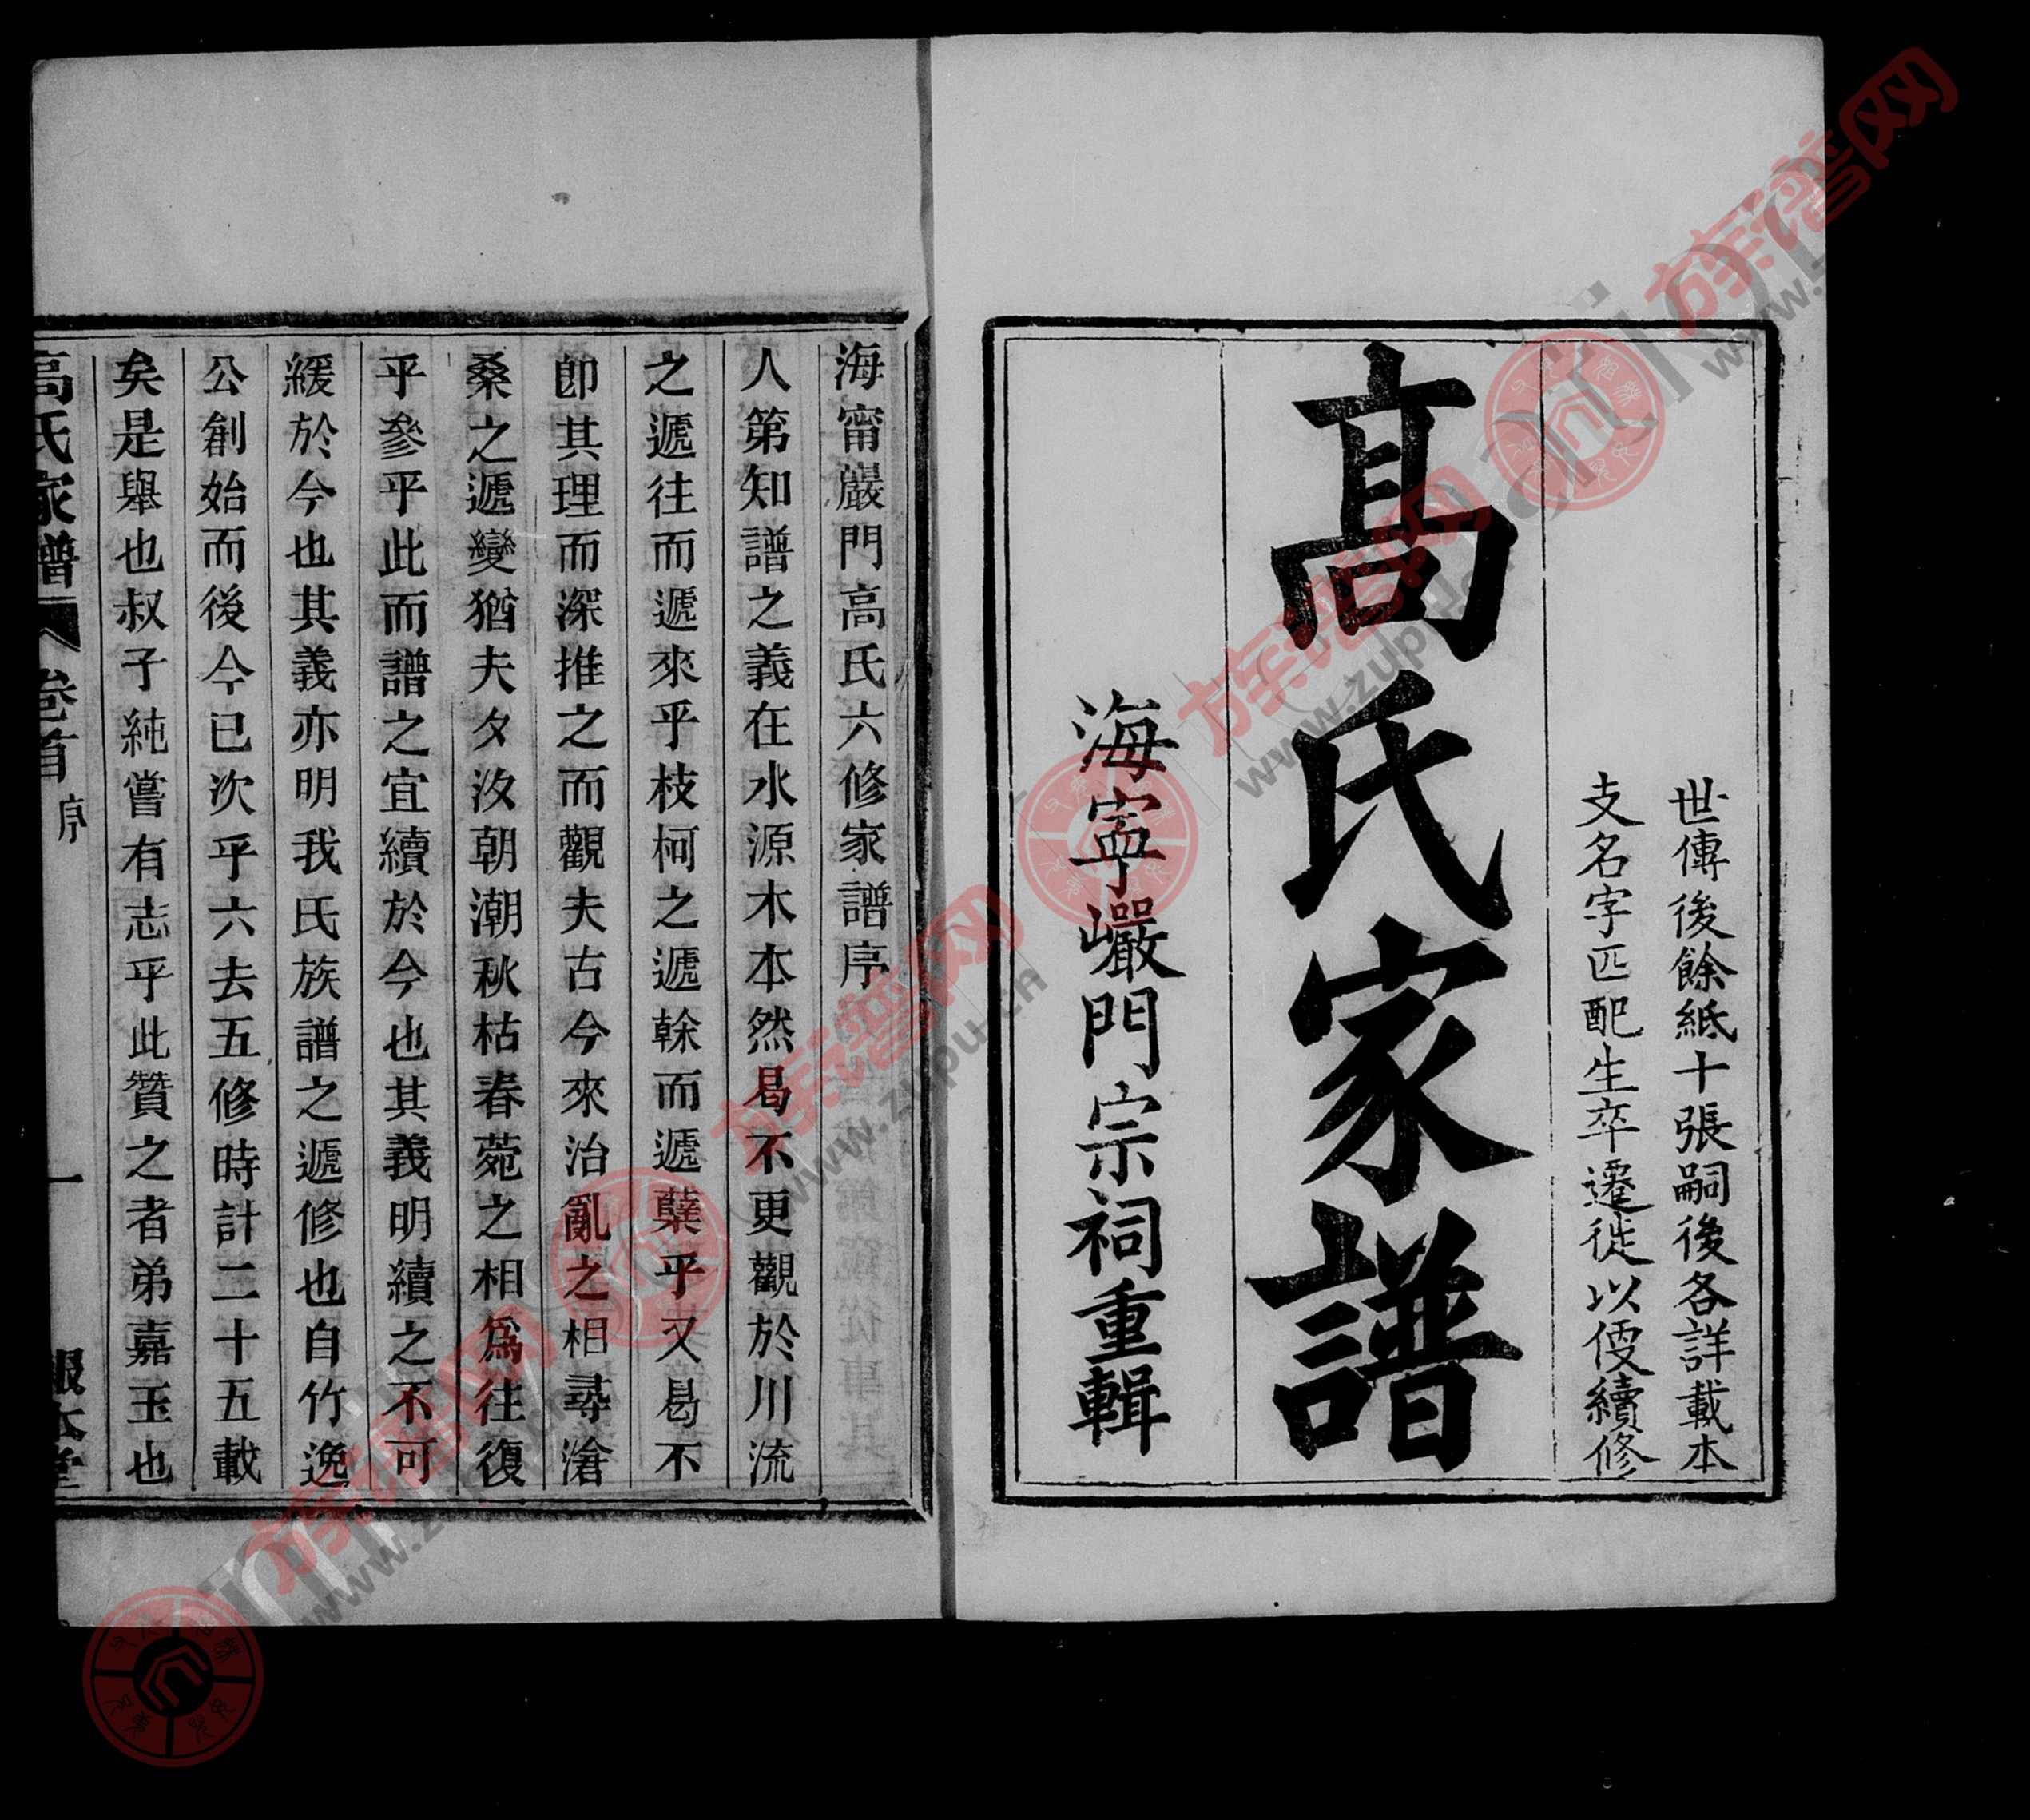 世傳後餘紙十張嗣後各詳載本
支名字匹配生卒遷徙以便續修
高氏家譜
海寧巖門宗祠重輯
海甯巖門高氏六修家譜序
人第知譜之義在水源木本然曷不更觀於川流
之遞往而遞來乎枝柯之遞榦而遞櫱乎又曷不
卽其理而深推之而觀夫古今來治亂之相尋滄
桑之遞變猶夫夕汐朝潮秋枯春菀之相爲往復
乎參乎此而譜之宜續於今也其義明續之不可
緩於今也其義亦明我氏族譜之遞修也自竹逸
公創始而後今已次乎六去五修時計二十五載
矣是舉也叔子純嘗有志乎此贊之者弟嘉玉也
高氏家譜 卷首 序 一 報本堂
族谱网
www.zupu.cn